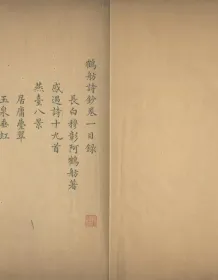 鶴舫詩鈔卷一目錄
長白穆彰阿鶴舫著
感遇詩十九首
燕臺八景
居庸疊翠
玉泉垂虹